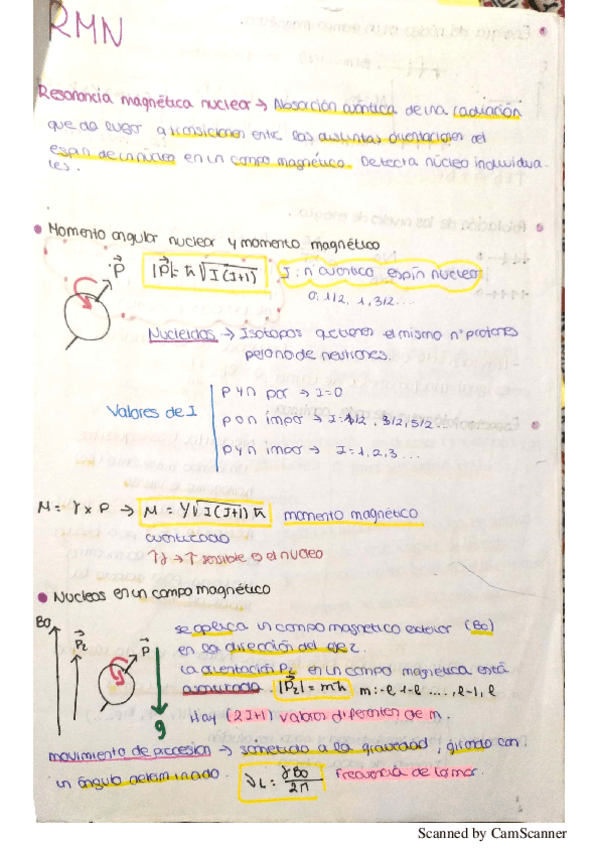 RMN
Resonancia magnética nuclear → Absorción cuántica de una radiación
que da lugar a transiciones entre las distintas orientaciones del
espín de un núcleo en un campo magnético. Detecta núcleo individua-
les.
• Momento angular nuclear y momento magnético
P⃗ |P⃗| = ħ√I(I+1) I: nº cuántico espín nuclear
0, 1/2, 1, 3/2...
Nucleidos → Isotopos que tienen el mismo nº protones
pero no de neutrones.
p y n par → I=0
Valores de I p o n impar → I=1/2, 3/2, 5/2
p y n impar → I=1, 2, 3...
M = γ × P → M = γ√I(I+1) ħ momento magnético
cuantizado
↑γ → ↑ sensible es el nucleo
• Nucleos en un campo magnético
B0 P⃗z P⃗ g
se aplica un campo magnetico exterior (B0)
en la dirección del eje z.
La orientación Pz en un campo magnetico está
|P⃗z| = mħ m: -l, 1-l ..., l-1, l
Hay (2I+1) valores diferentes de m.
movimiento de precesion → sometido a la gravedad, girando con
un ángulo determinado. νL = γB0/2π frecuencia de Larmor.
Scanned by CamScanner